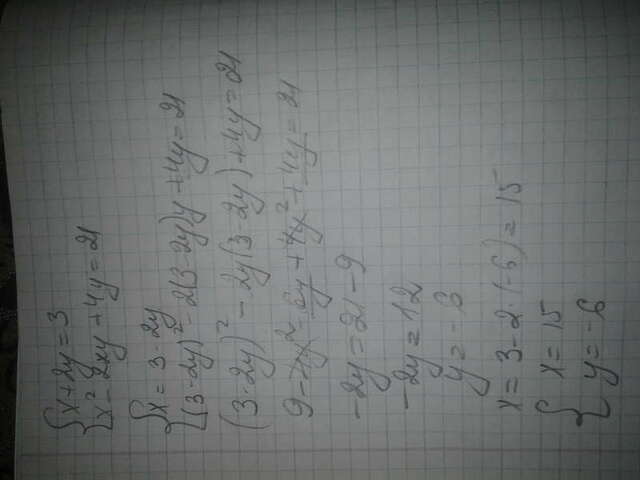 {x+2y=3
{x²-2xy+4y=21
{x=3-2y
{(3-2y)²-2(3-2y)y+4y=21
(3-2y)²-2y(3-2y)+4y=21
9-4y²-6y+4y²+4y=21
-2y=21-9
-2y=12
y=-6
x=3-2·(-6)=15
{x=15
{y=-6